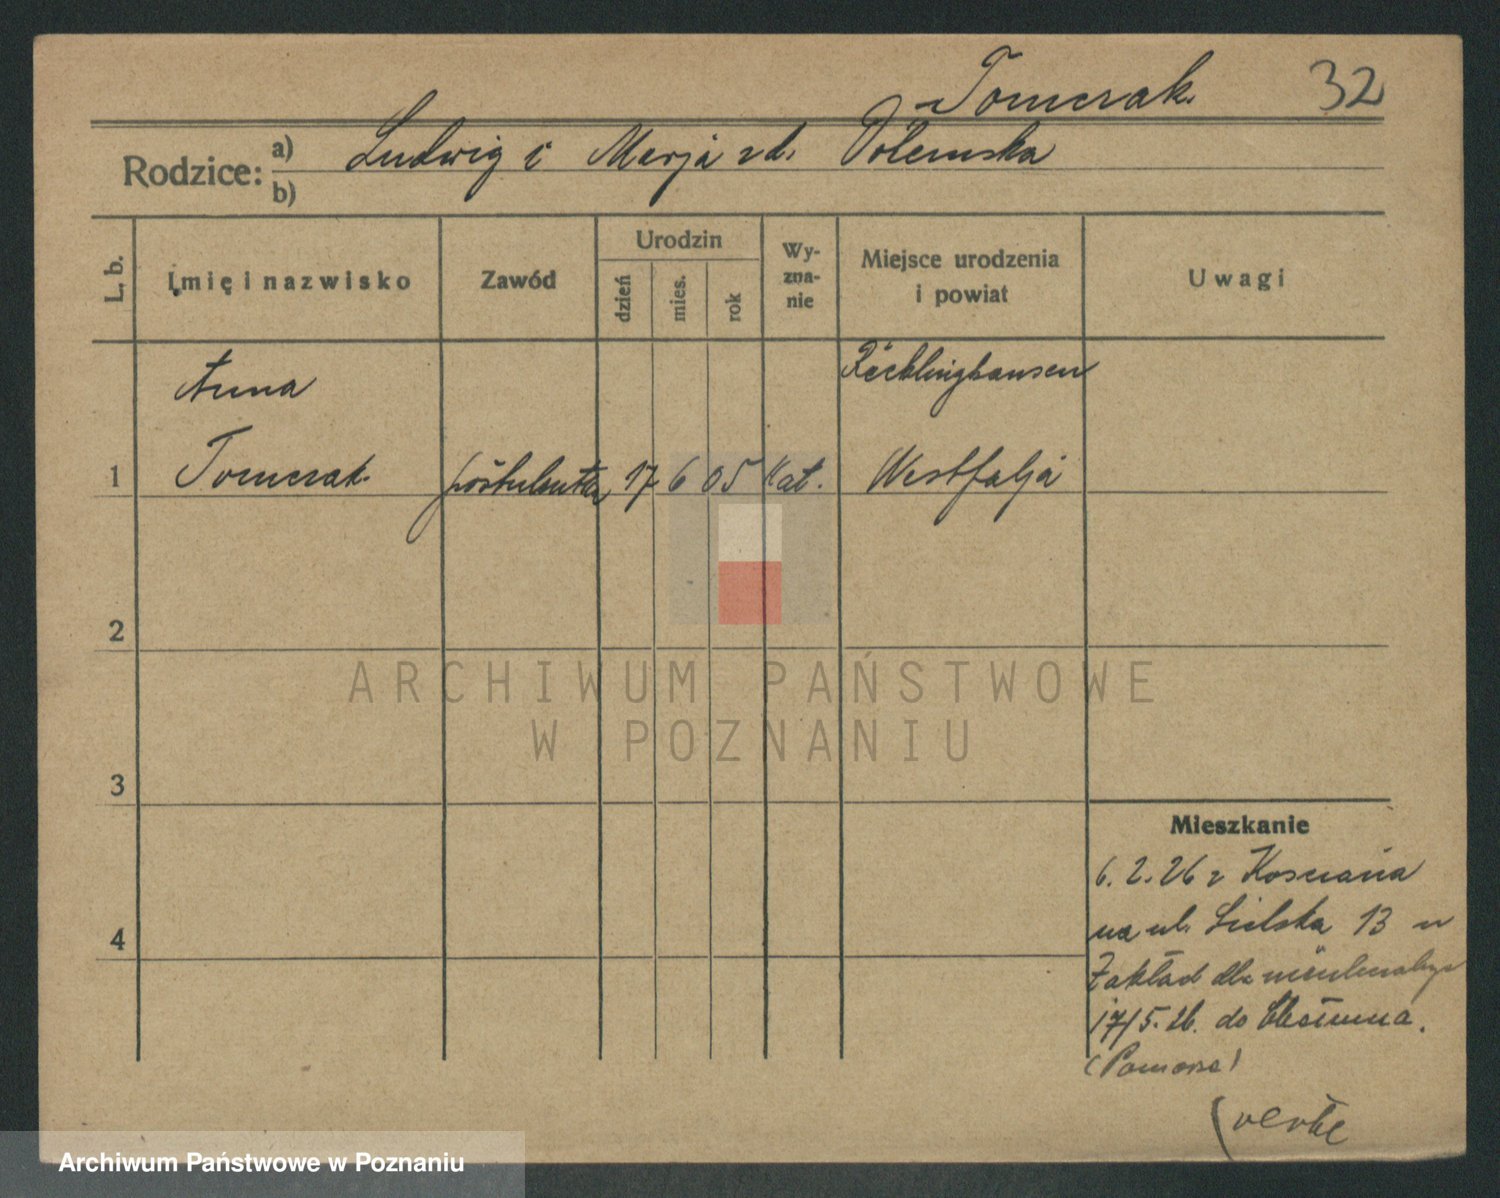 Tomczak. 32
Rodzice: a) Ludwig i Marja z d. Wolemska
b)
L. b. Imię i nazwisko Zawód Urodzin Wyznanie Miejsce urodzenia i powiat Uwagi
dzień mies. rok
Anna Recklinghausen
1 Tomczak postulantka 17 6 05 kat. Westfalja
2
3
4
Mieszkanie
6. 2. 26 z Kościana
na ul. 13 w
Zakład dla nieuleczalnych
17/5. 26. do Chełmna.
(Pomorze)
verte
ARCHIWUM PAŃSTWOWE
W POZNANIU
Archiwum Państwowe w Poznaniu